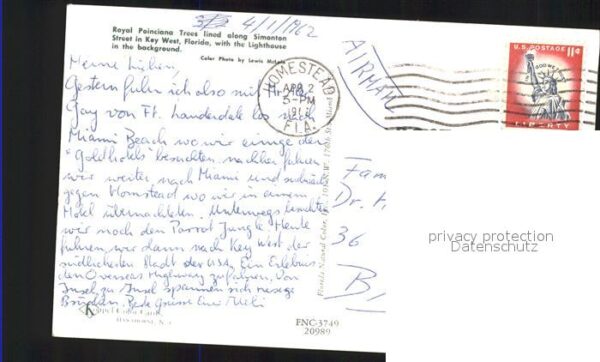 Royal Poinciana Trees lined along Simonton
Street in Key West, Florida, with the Lighthouse
in the background.
Color Photo by Lewis
4/1/1962
AIRMAIL
HOMESTEAD
APR 2
5-PM
FLA.
U.S. POSTAGE 11¢
LIBERTY
Meine Lieben,
Gestern fuhr ich also mit
Gay von Ft. Lauderdale los nach
Miami Beach wo wir einige der
"Goldhotels" besuchten. nachher fuhren
wir weiter nach Miami und
gegen Homestead wo wir in einem
Motel übernachteten. Unterwegs besuchten
wir noch den Parrot Jungle. Heute
fuhren wir dann nach Key West der
südlichsten Stadt der USA. Ein Erlebnis
den Overseas Highway zu fahren. Von
Insel zu Insel spannen sich riesige
Brücken. Beste Grüsse Euer Ueli
Fam
Dr. H
36
B
privacy protection
Datenschutz
FNC-3749
20989